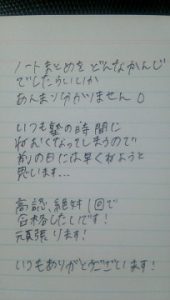 ノートまとめをどんなかんじ
でしたらいいか
あんまり分かりません。
いつも塾の時間に
ねむくなってしまうので
前の日には早くねようと
思います...
高認、絶対1回で
合格したいです!
頑張ります!
いつもありがとうございます!